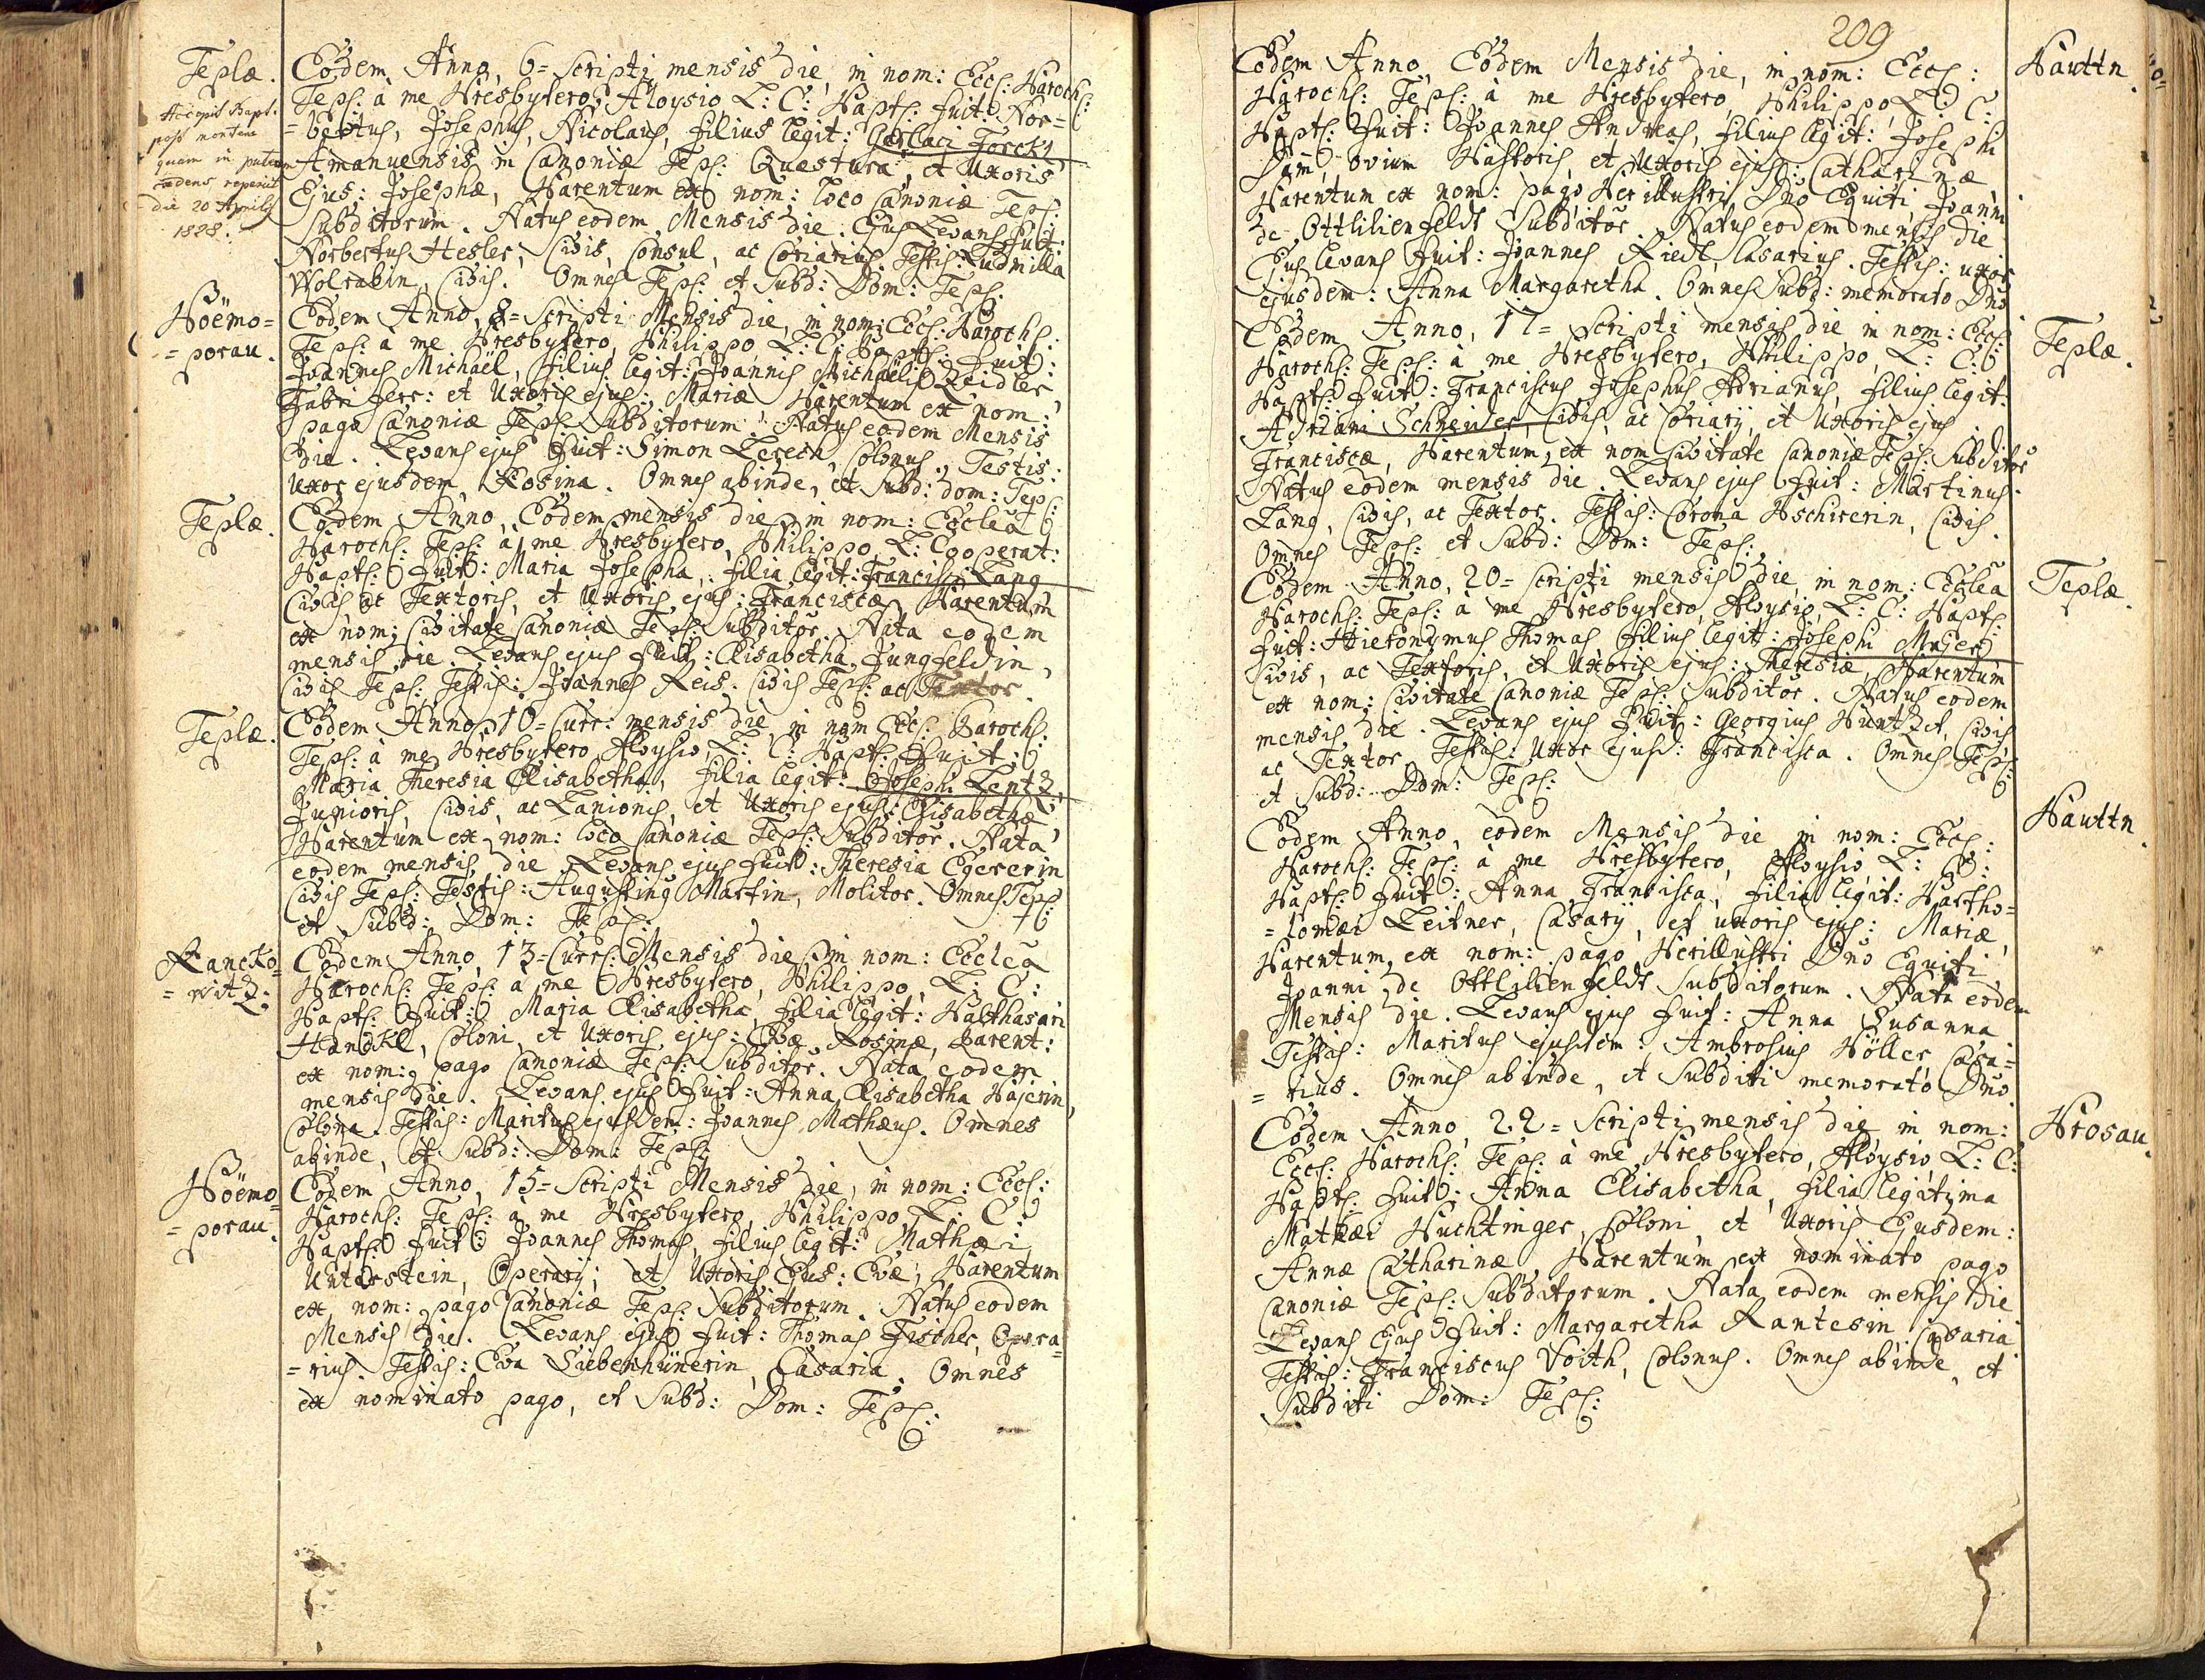 Teplæ.
Accepit Bapt.
post mortem
quam in puteum
cadens reperiit
die 20 Aprilis
1828.
Eodem Anno, 6= Scripti mensis die, in nom: Eccl: Paroch:
Tepl: à me Presbytero, Aloysio L: C: Bapt: fuit: Nor=
=bertus, Josephus, Nicolaus, filius legit: Gerlaci Forckl
Amanuensis in Canoniæ Tepl: Questura, et Uxoris
Ejus: Josephæ, Parentum ex nom: loco Canoniæ Tepl:
Subditorum. Natus eodem Mensis die. Ejus Levans fuit:
Norbertus Hesler, Civis, Consul, ac Coriarius. Testis: Ludmilla
Wolrabin, Civis. Omnes Tepl: et Subd: Dom: Tepl:
Pöemo=
=porau.
Eodem Anno, 8= Scripti Mensis die, in nom: Eccl: Paroch:
Tepl: à me Presbytero, Philippo L: C: Bapt: fuit:
Joannes Michaël, filius legit: Joannis Michaëlis Zeidler,
Fabri ferr: et Uxoris ejus: Mariæ Parentum ex nom:
pago Canoniæ Tepl: Subditorum. Natus eodem Mensis
die. Levans ejus fuit: Simon Lerech, Colonus. Testis:
Uxor ejusdem, Rosina. Omnes abinde, et Subd: dom: Tepl:
Teplæ.
Eodem Anno, Eodem mensis die, in nom: Ecclea
Paroch: Tepl: à me Presbytero, Philippo, L: Cooperat:
Bapt: fuit: Maria Josepha, filia legit: Francisci Lang
Civis ac Textoris, et Uxoris ejus: Franciscæ, Parentum
ex nom: Civitate Canoniæ Tepl: Subditor. Nata eodem
mensis die. Levans ejus fuit: Elisabetha Jungfeldin,
Civis Tepl: Testis: Joannes Reis. Civis Tepl: ac Textor.
Teplæ.
Eodem Anno, 10= Curr: mensis die, in nom Eccl: Paroch:
Tepl: à me Presbytero Aloysio, L: C: Bapt: fuit:
Maria Theresia Elisabetha, filia legit: Josephi Lentz,
Junioris, Civis, ac Lanionis, et Uxoris ejus: Elisabethæ
Parentum ex nom: loco Canoniæ Tepl: Subditor. Nata
eodem mensis die Levans ejus fuit: Theresia Egererin
Civis Tepl: Testis: Augustinus Martin, Molitor. Omnes Tepl:
et Subd: Dom: Tepl:
Rancko=
=witz:
Eodem Anno, 13= Curr: Mensis die in nom: Ecclea
Paroch: Tepl: à me Presbytero, Philippo, L: C:
Bapt: fuit: Maria Elisabetha, filia legit: Balthasari
Handkl, Coloni, et Uxoris ejus: Evæ Rosinæ, Parent:
ex nom: pago Canoniæ Tepl: Subditor. Nata eodem
mensis die. Levans ejus fuit: Anna Elisabetha Pajerin,
Colona. Testis: Maritus ejusdem: Joannes Mathæus. Omnes
abinde, et Subd: Dom: Tepl:
Pöemo=
=porau.
Eodem Anno, 15= Scripti Mensis die, in nom: Eccl:
Paroch: Tepl: à me Presbytero, Philippo, L: C:
Bapt: fuit: Joannes Thomas, filius legit: Mathæi
Unterstein, Operarij, et Uxoris Ejus: Evæ, Parentum
ex nom: pago Canoniæ Tepl: Subditorum. Natus eodem
Mensis die. Levans ejus fuit: Thomas Fischer, Opera=
=rius. Testis: Eva Siebenhünerin, Casaria. Omnes
ex nominato pago, et Subd: Dom: Tepl:
209
Pauttn.
Eodem Anno, Eodem Mensis die, in nom: Eccl:
Paroch: Tepl: à me Presbytero, Philippo, L: C:
Bapt: fuit: Joannes Andreas, filius legit: Josephi
ovium Pastoris, et Uxoris ejus: Catharinæ,
Parentum ex nom: pago Perillustri Dnõ Equiti Joanni
de Ottlilienfeldt Subditor. Natus eodem mensis die
Ejus levans fuit: Joannes Riedl, Casarius. Testis: uxor
ejusdem: Anna Margaretha. Omnes Subd: memorato Dnõ
Teplæ.
Eodem Anno, 17= Scripti mensis die in nom: Eccl:
Paroch: Tepl: à me Presbytero, Philippo, L: C:
Bapt: fuit: Franciscus Josephus Adrianus, filius legit:
Adriani Schneider, Civis, ac Coriarij, et Uxoris ejus
Franciscæ, Parentum, ex nom Civitate Canoniæ Tepl: Subditor
Natus eodem mensis die. Levans ejus fuit: Martinus
Lang, Civis, ac Textor. Testis: Corona Pschirerin, Civis.
Omnes Tepl: et Subd: Dom: Tepl:
Teplæ.
Eodem Anno, 20= Scripti mensis die, in nom: Ecclea
Paroch: Tepl: à me Presbytero, Aloysio, L: C: Bapt:
fuit: Hieronymus Thomas filius legit: Josephi Majer
Civis, ac Textoris, et Uxoris ejus: Theresiæ, Parentum
ex nom: Civitate Canoniæ Tepl: Subditor. Natus eodem
mensis die. Levans ejus fuit: Georgius Civis
ac Textor. Testis: Uxor ejusd: Francisca. Omnes Tepl:
et Subd: Dom: Tepl:
Pauttn.
Eodem Anno, eodem Mensis die in nom: Eccl:
Paroch: Tepl: à me Presbytero, Aloysio, L: C:
Bapt: fuit: Anna Francisca, filia legit: Bartho=
=lomæi Leitner, Casarij, et uxoris ejus: Mariæ,
Parentum, ex nom: pago Perillustri Dnõ Equiti
Joanni de Ottlilienfeldt Subditorum. Nata eodem
Mensis die. Levans ejus fuit: Anna Susanna
Testis: Maritus ejusdem: Ambrosius Höller, Casa=
=rius. Omnes abinde, et Subditi memorato Dnõ
Prosau.
Eodem Anno, 22= Scripti mensis die in nom:
Eccl: Paroch: Tepl: à me Presbytero, Aloysio, L: C:
Bapt: fuit: Anna Elisabetha, filia legitima
Mathæi Huchtinger, Coloni, et Uxoris Ejusdem:
Annæ Catharinæ, Parentum ex nominato pago
Canoniæ Tepl: Subditorum. Nata eodem mensis die
Levans Ejus fuit: Margaretha Rantesin Casaria
Testis: Franciscus Voith, Colonus. Omnes abinde, et
Subditi Dom: Tepl: